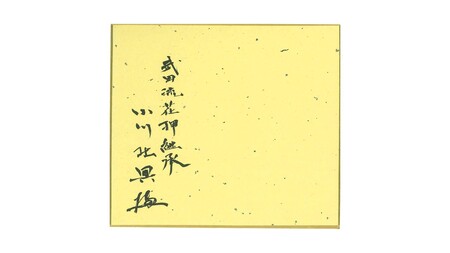 武田流花押継承
小川北興